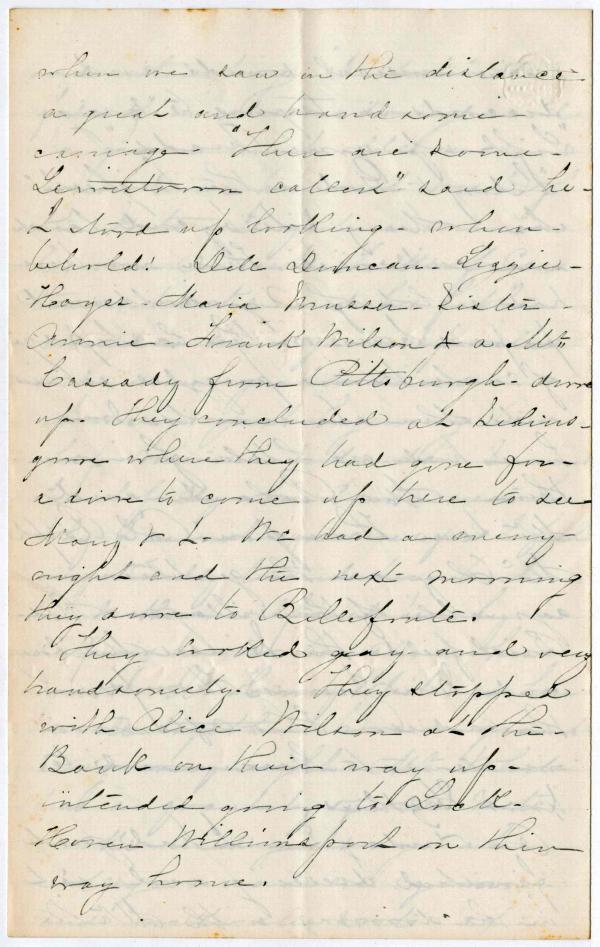 when we saw in the distance
a great and handsome -
carriage - "There are some -
Lewistown callers" said he -
I stood up looking - when -
behold! Dell Duncan - Lizzie -
Hayes - Maria Musser - Sister -
Annie - Frank Wilson & a Mr.
Cassady from Pittsburgh - drove
up. They concluded at Selins-
grove where they had gone for -
a drive to come up here to see
Mary & I - We had a merry -
night and the next morning
they drove to Bellefonte.
They looked gay and very
handsomely. They stopped
with Alice Wilson at the -
Bank on their way up -
intended going to Lock -
Haven Williamsport on their
way home.